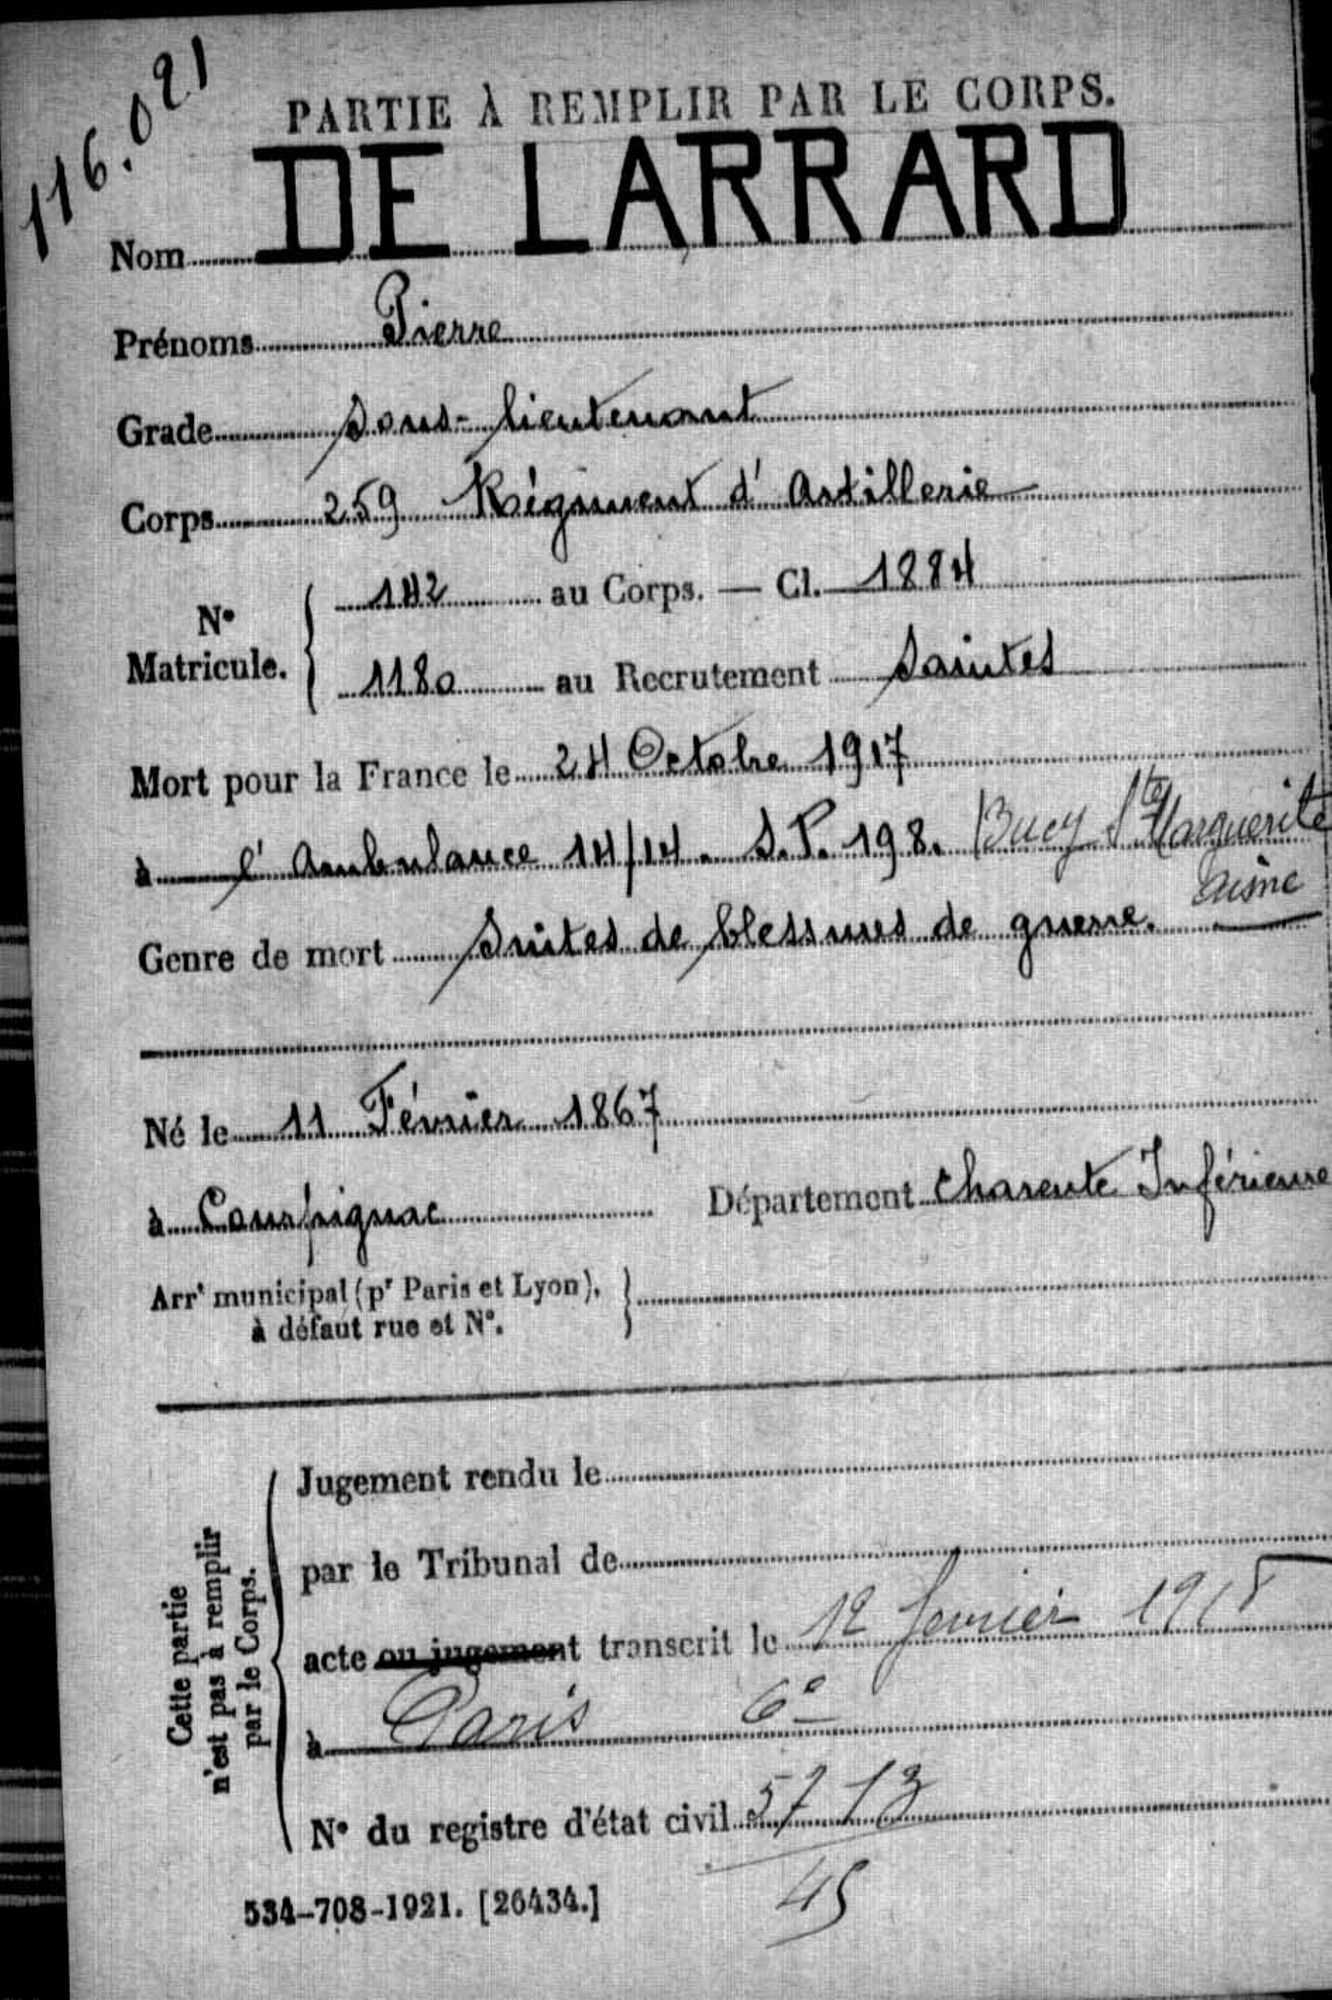 116.021
PARTIE À REMPLIR PAR LE CORPS.
Nom DE LARRARD
Prénoms Pierre
Grade Sous-lieutenant
Corps 259 Régiment d'Artillerie
N° Matricule. 142 au Corps. — Cl. 1884
1180 au Recrutement Saintes
Mort pour la France le 24 Octobre 1917
à l'Ambulance 14/14. S.P. 198. Bucy Ste Marguerite
Aisne
Genre de mort Suites de blessures de guerre.
Né le 11 Février 1867
à Courpignac Département Charente Inférieure
Arrt municipal (pr Paris et Lyon),
à défaut rue et N°.
Cette partie
n'est pas à remplir
par le Corps.
Jugement rendu le
par le Tribunal de
acte ou jugement transcrit le 12 février 1918
à Paris 6e
N° du registre d'état civil 5713
45
534-708-1921. [26434.]